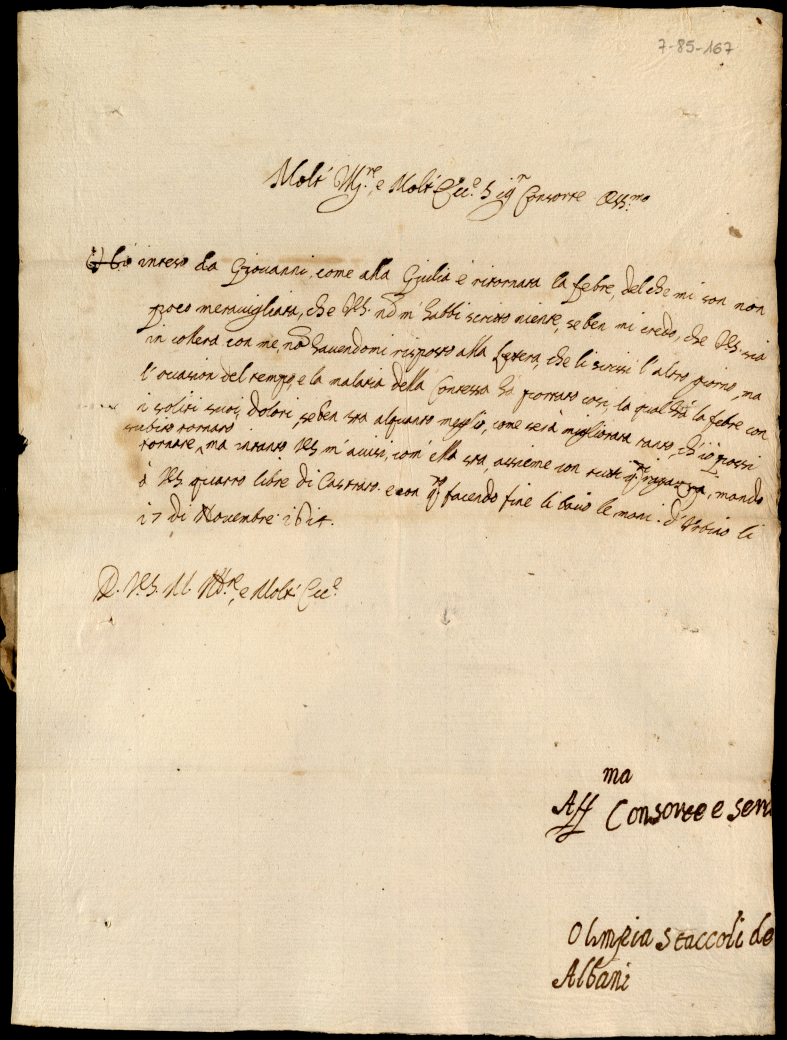 7-85-167
Molt' Ill.re, e Molt' Ecc.e Sig.r Consorte Oss.mo
Hò inteso da Giovanni, come alla Giulia è ritornata la febre, del che mi son non
poco meravigliata, che VS. nõ m' habbi scritto niente, se ben mi credo, che VS. sia
in collera con me, nõ havendomi risposto alla lettera, che li scrissi l'altro giorno, ma
l'ocasion del tempo, e la malatia della Contessa ha portato così, la qual hà la febre con
i soliti suoi dolori, se ben sta alquanto meglio, come serà migliorata tanto, ch'io possi
subito tornarò
tornare, ma intanto VS m'avisi, com' ella sta, assieme con tutti q.ti ragazzi, mando
à VS quatro libre di Castrato. e con q.to facendo fine li bacio le mani. d'Urbino li
17 di Novembre 1614.
D. VS. M. Ill.re, e Molt' Ecc.e
ma
Aff Consorte e serv
Olimpia Staccoli de
Albani